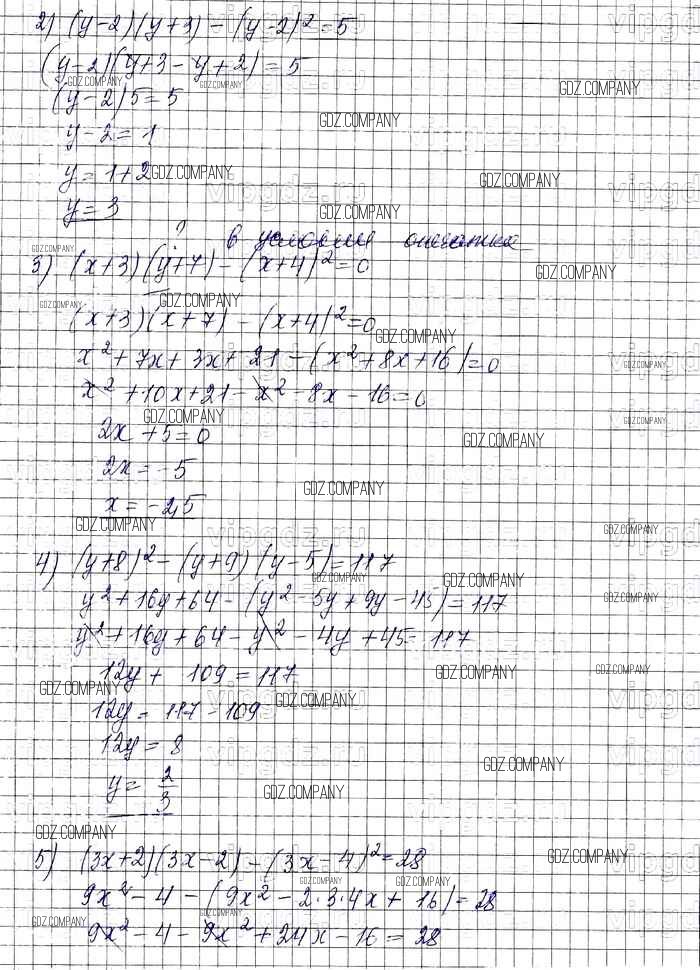 2) (y-2)(y+3) - (y-2)² = 5
(y-2)(y+3-y+2) = 5
(y-2)5 = 5
y-2 = 1
y = 1+2
y = 3
? в условии опечатка
3) (x+3)(y+7) - (x+4)² = 0
(x+3)(x+7) - (x+4)² = 0
x² + 7x + 3x + 21 - (x² + 8x + 16) = 0
x² + 10x + 21 - x² - 8x - 16 = 0
2x + 5 = 0
2x = -5
x = -2,5
4) (y+8)² - (y+9)(y-5) = 117
y² + 16y + 64 - (y² - 5y + 9y - 45) = 117
y² + 16y + 64 - y² - 4y + 45 = 117
12y + 109 = 117
12y = 117 - 109
12y = 8
y = 2/3
5) (3x+2)(3x-2) - (3x-4)² = 28
9x² - 4 - (9x² - 2·3·4x + 16) = 28
9x² - 4 - 9x² + 24x - 16 = 28
GDZ.COMPANY
vipgdz.ru